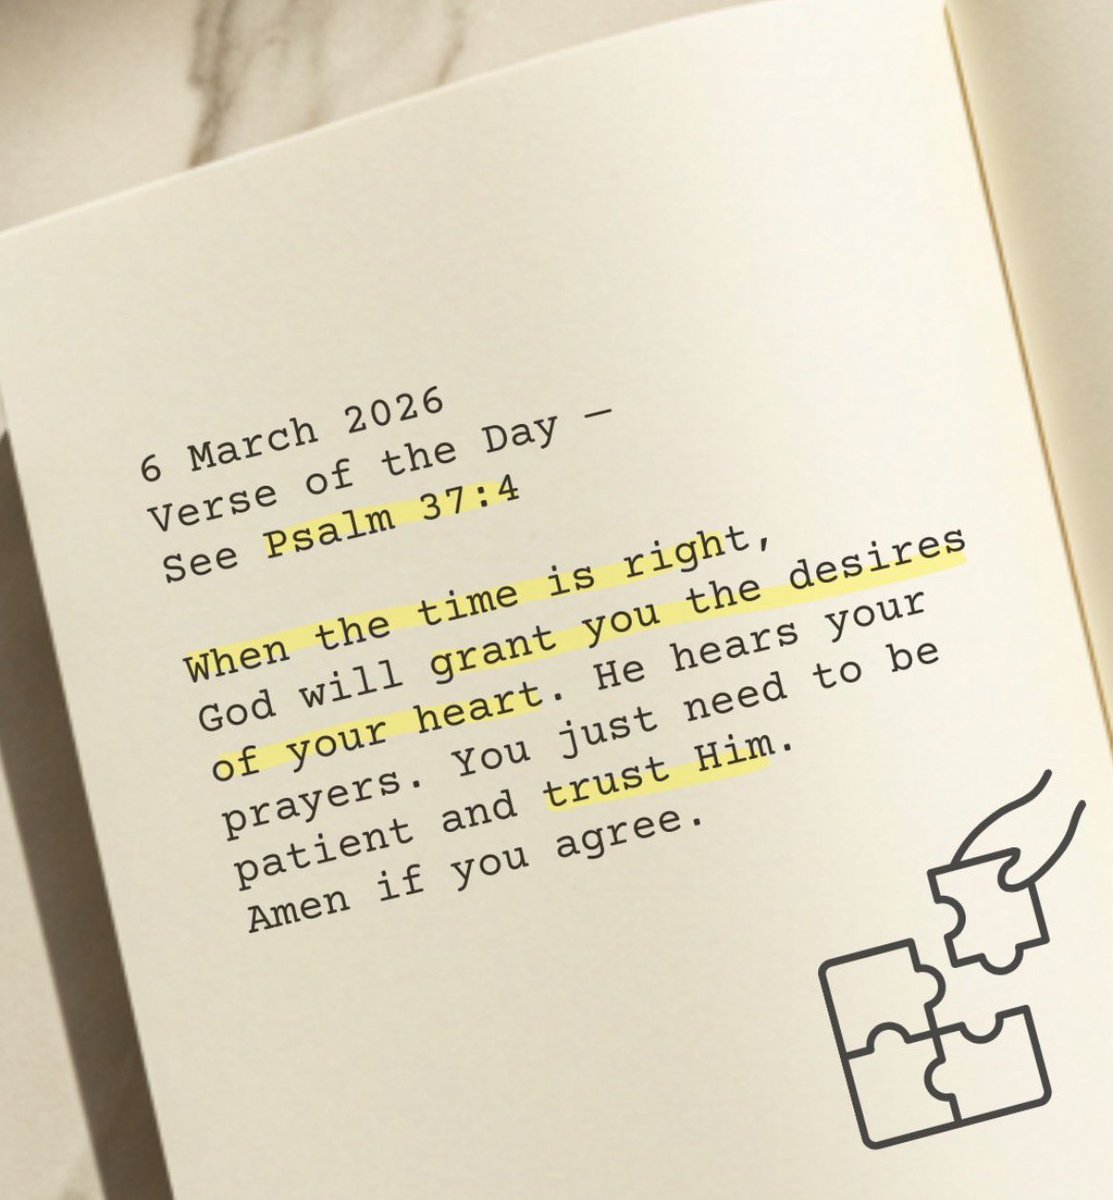 6 March 2026
Verse of the Day —
See Psalm 37:4
When the time is right,
God will grant you the desires
of your heart. He hears your
prayers. You just need to be
patient and trust Him.
Amen if you agree.